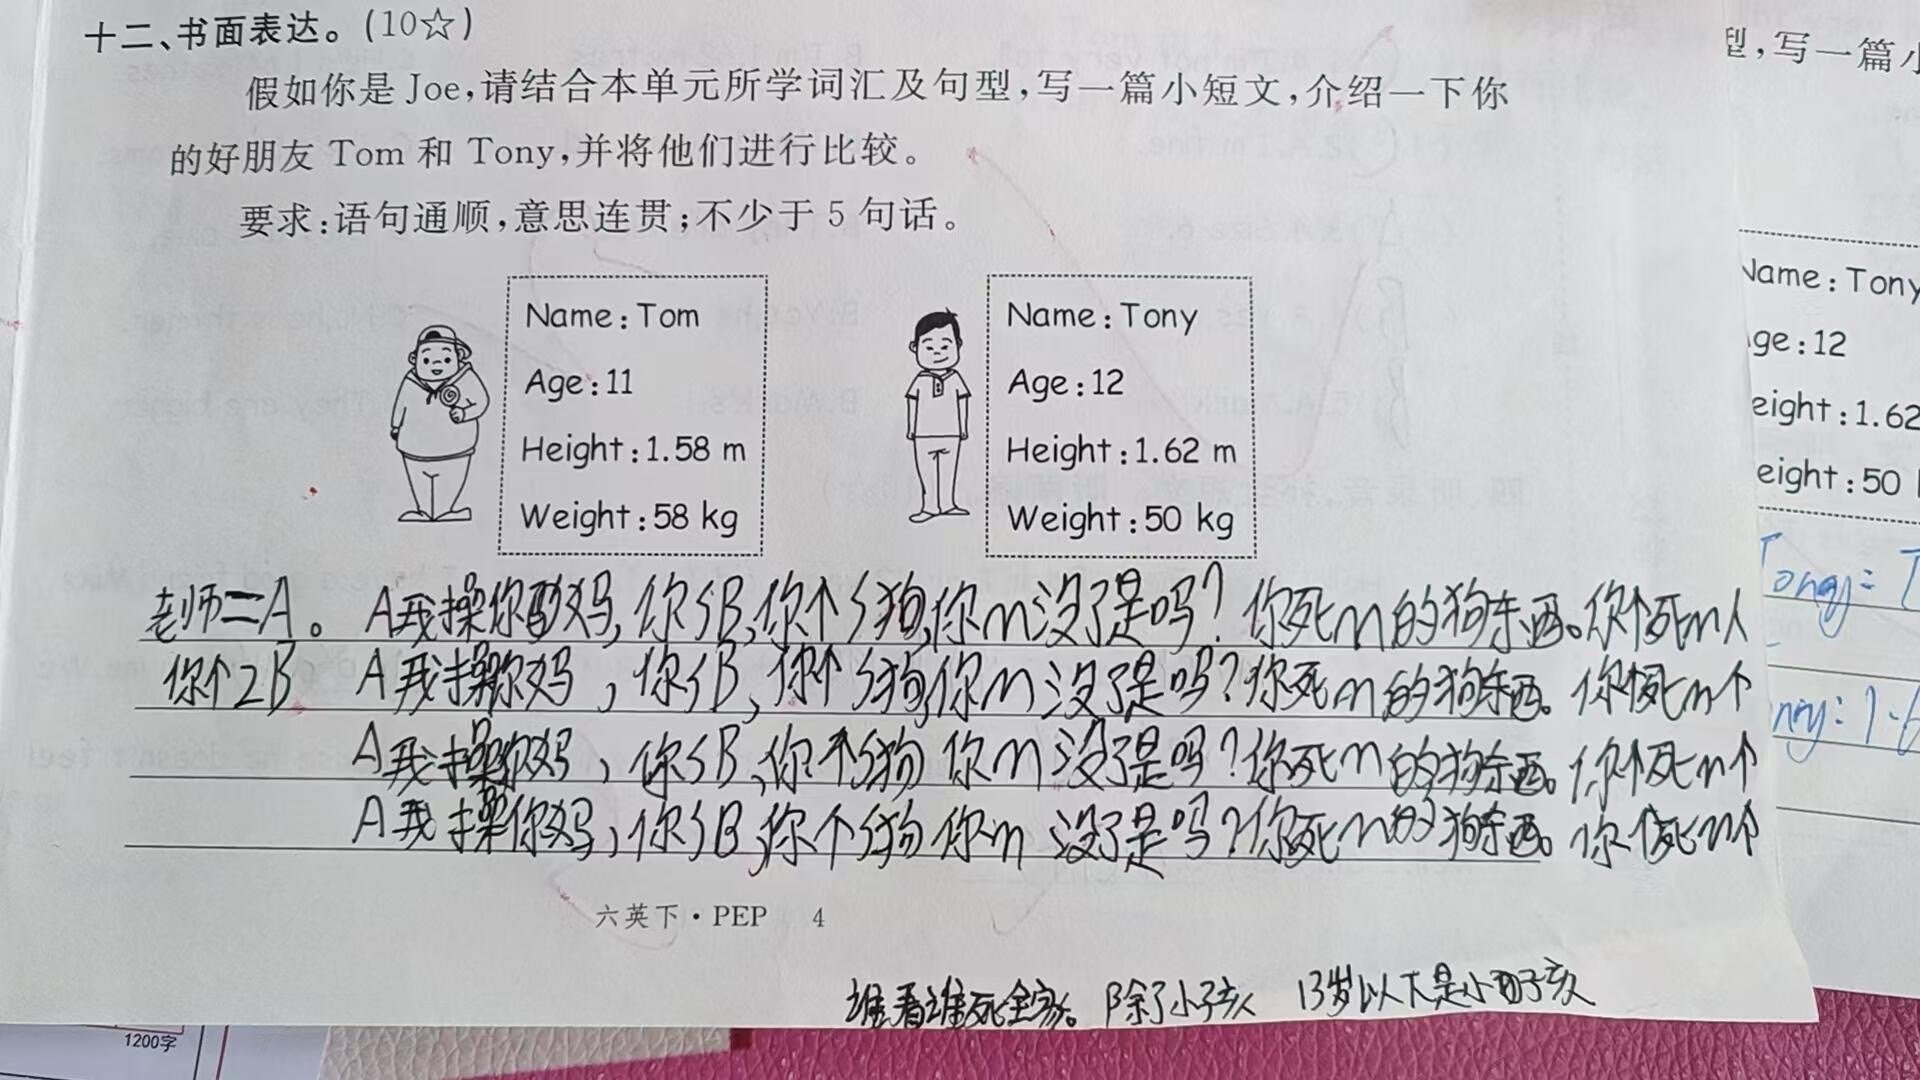 十二、书面表达。(10☆)
假如你是 Joe,请结合本单元所学词汇及句型,写一篇小短文,介绍一下你
的好朋友 Tom 和 Tony,并将他们进行比较。
要求:语句通顺,意思连贯;不少于 5 句话。
Name: Tom
Age: 11
Height: 1.58 m
Weight: 58 kg
Name: Tony
Age: 12
Height: 1.62 m
Weight: 50 kg
老师=A。 A我操你妈,你SB,你个S狗,你m没了是吗?你死m的狗东西。你个死m人
你个2B A我操你妈,你SB,你个S狗,你m没了是吗?你死m的狗东西。你个死m个
A我操你妈,你SB,你个S狗你m没了是吗?你死m的狗东西。你个死m个
A我操你妈,你SB,你个S狗你m没了是吗?你死m的狗东西。你个死m个
六英下·PEP 4
谁看谁死全家。除了小孩 13岁以下是小孩
型,写一篇小
Name: Tony
ge: 12
eight: 1.62
eight: 50
Tony:
1200字